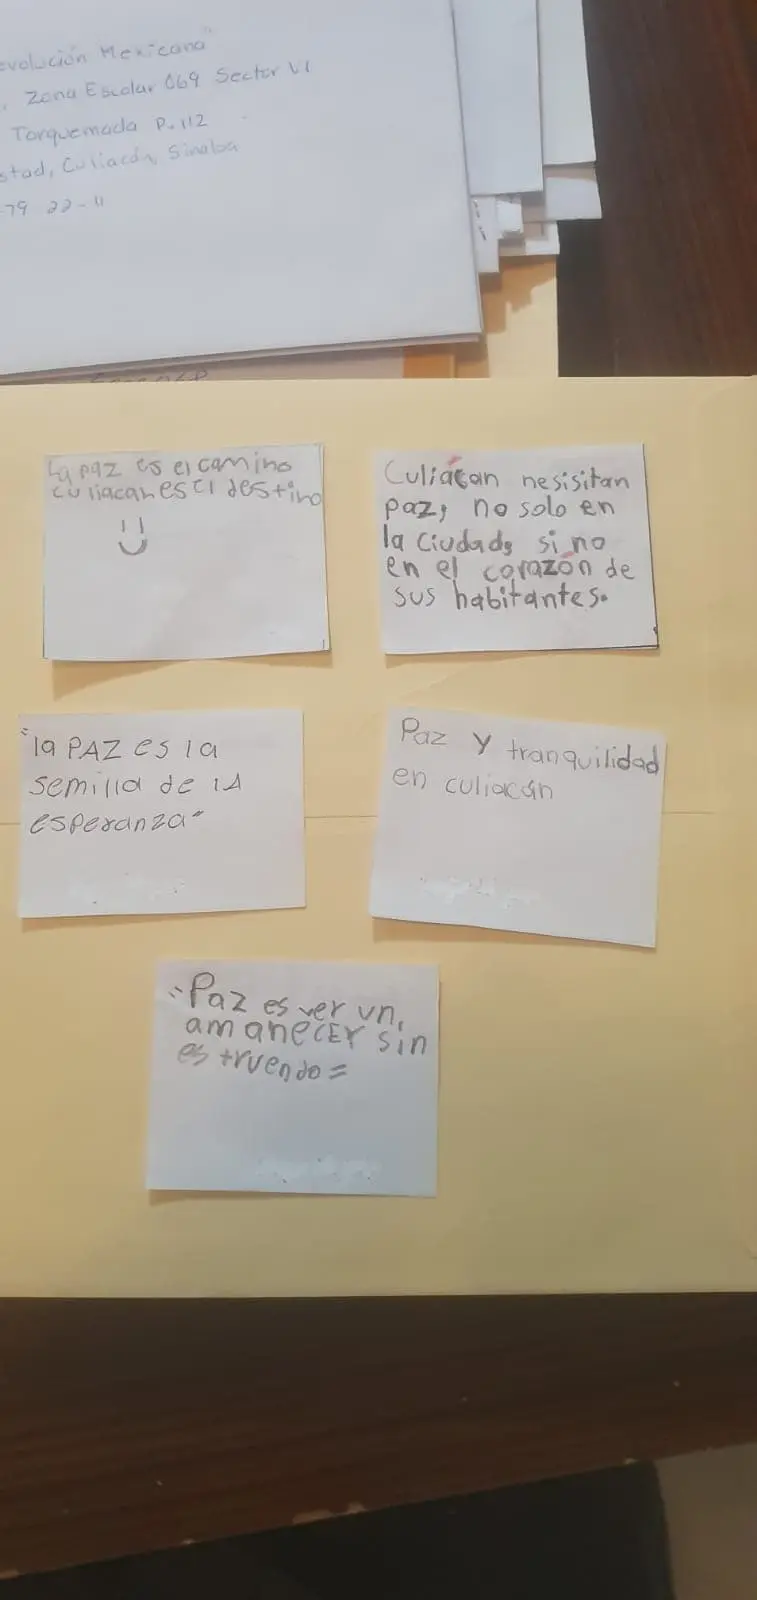 evolución Mexicana"
Zona Escolar 069 Sector VI
Torquemada P. 112
stad, Culiacán, Sinaloa
79 22-11
La paz es el camino
culiacan es el destino
Culiácan nesisitan
paz, no solo en
la ciudad, si no
en el corazón de
sus habitantes.
"la PAZ es la
semilla de lA
esperanza"
Paz y tranquilidad
en culiacán
"Paz es ver un
amanecEr sin
estruendo"